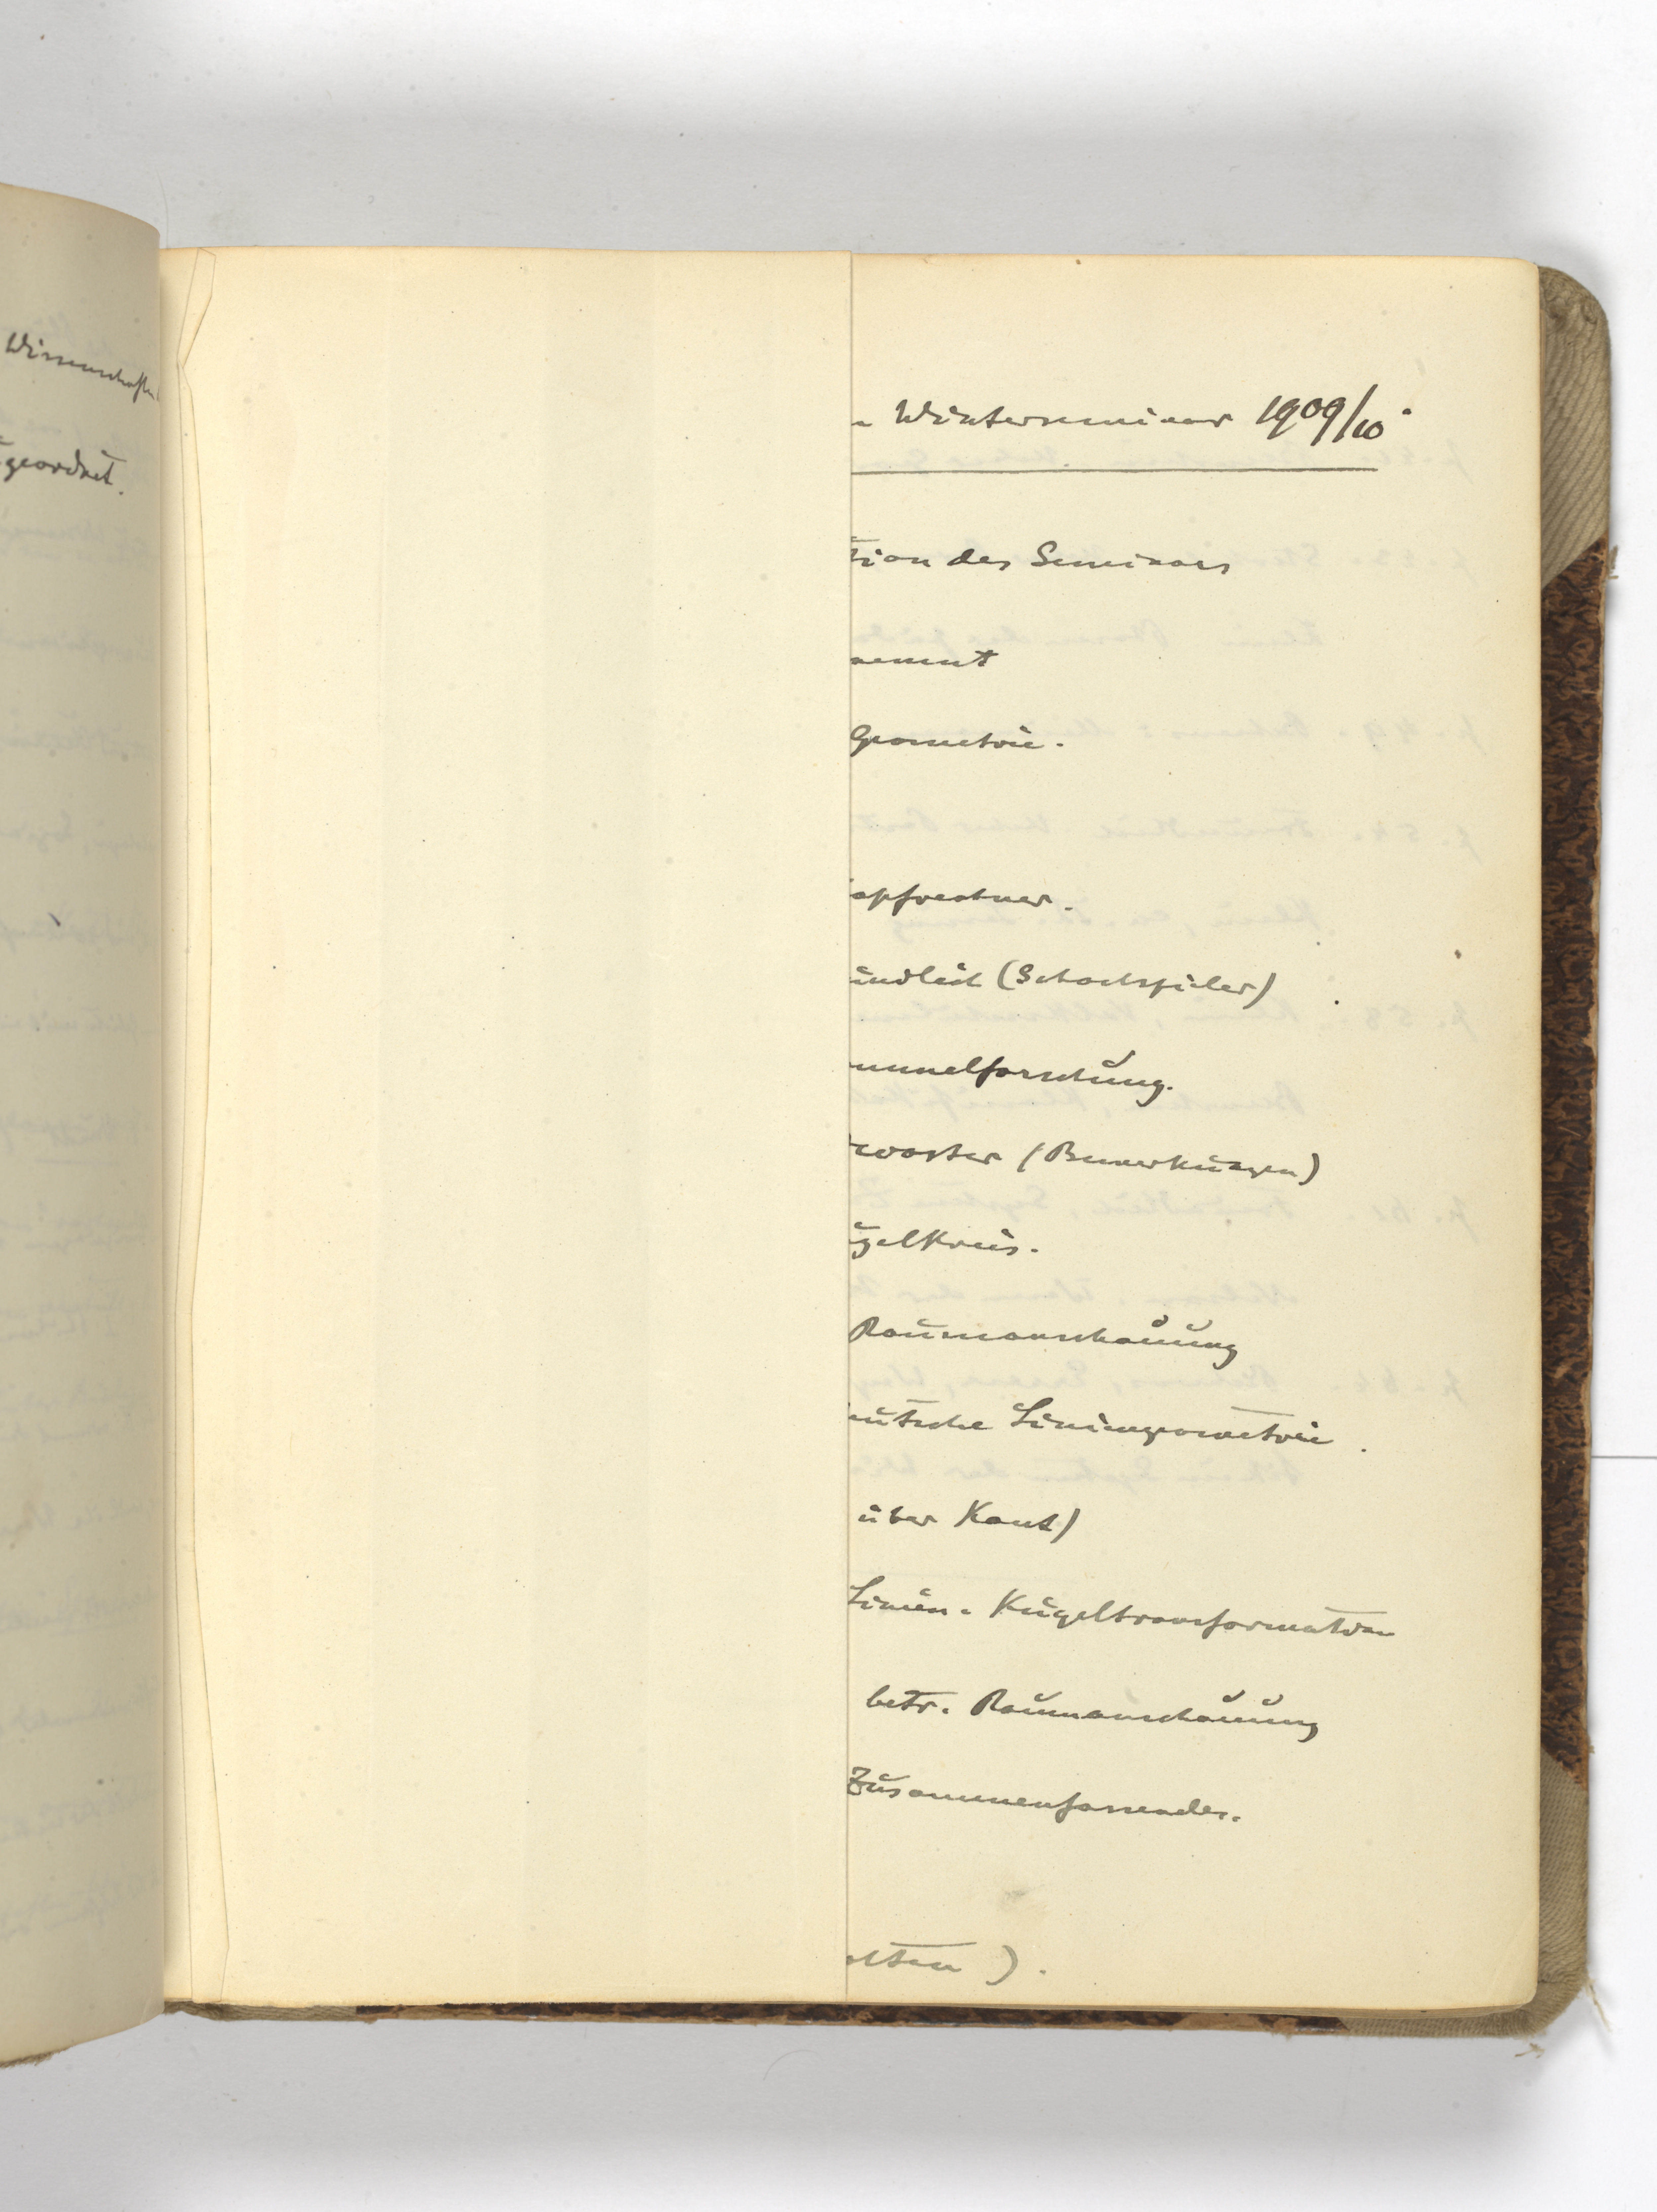 Wissenschaften
geordnet.
Winterseminar 1909/10.
tion des Seminars
nement
Geometrie.
opfrechner.
ündlich (Schachspieler)
mmelforschung.
(Bemerkungen)
ugelkreis.
Raumanschauung
Liniengeometrie.
über Kant)
Linien-Kugeltransformation
betr. Raumanschauung
Zusammenfassendes.
).